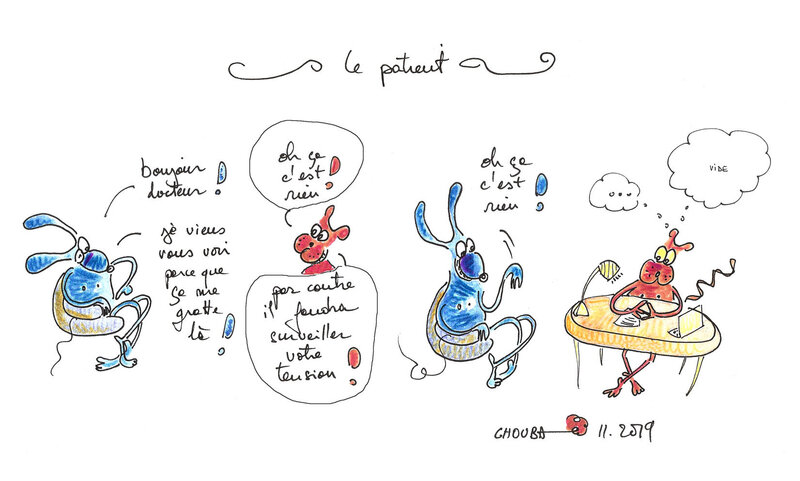 le patient
bonjour
docteur !
je viens
vous voir
parce que
ça me
gratte
là !
oh ça
c'est
rien !
par contre
il faudra
surveiller
votre
tension !
oh ça
c'est
rien !
...
VIDE
CHOUBA 11.2019